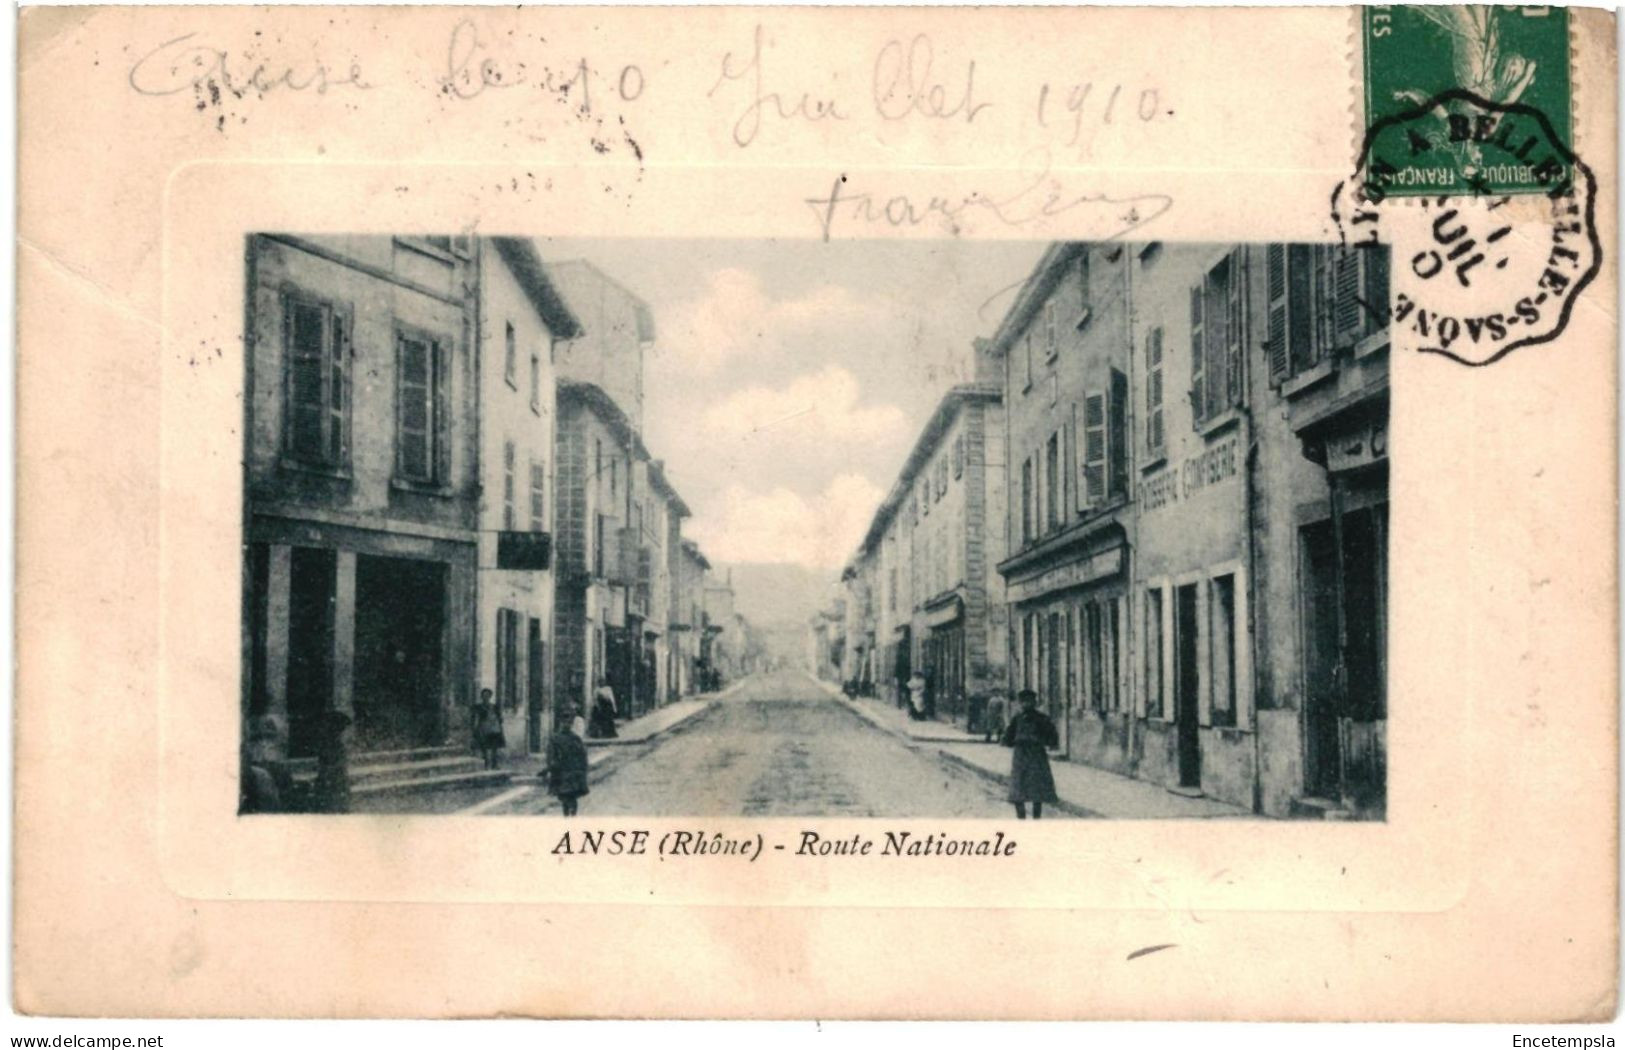 Anse le 10 Juillet 1910.
LYON A BELLEVILLE-S-SAÔNE
JUIL
PATISSERIE CONFISERIE
ANSE (Rhône) - Route Nationale
delcampe.net
Encetempsla